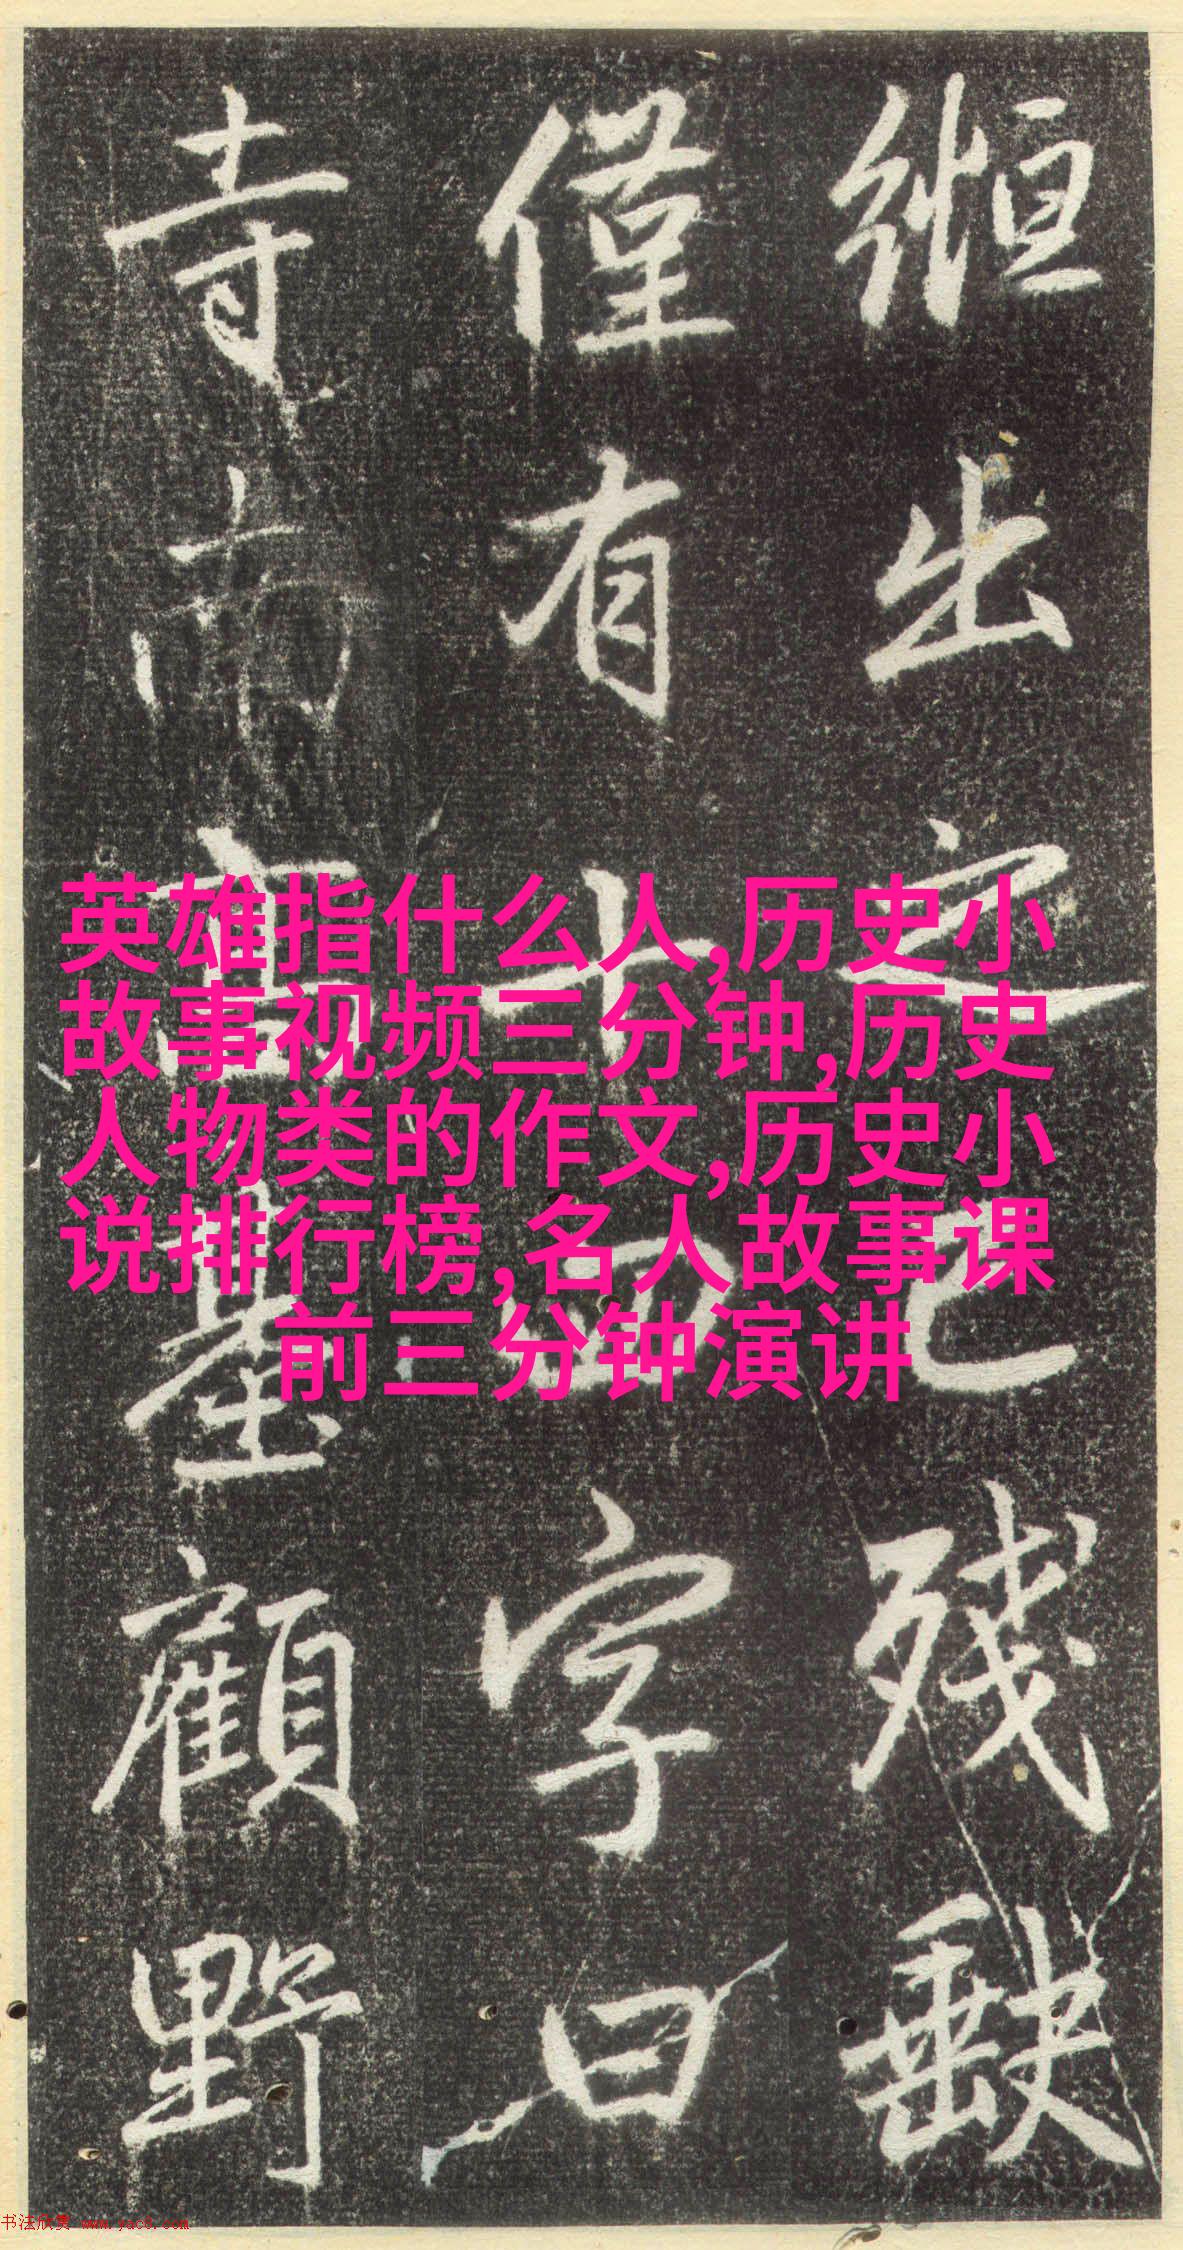 縆出之已残缺
僅有十四字曰
寺南高基顧野
英雄指什么人,历史小
故事视频三分钟,历史
人物类的作文,历史小
说排行榜,名人故事课
前三分钟演讲
书法欣赏 www.yac8.com